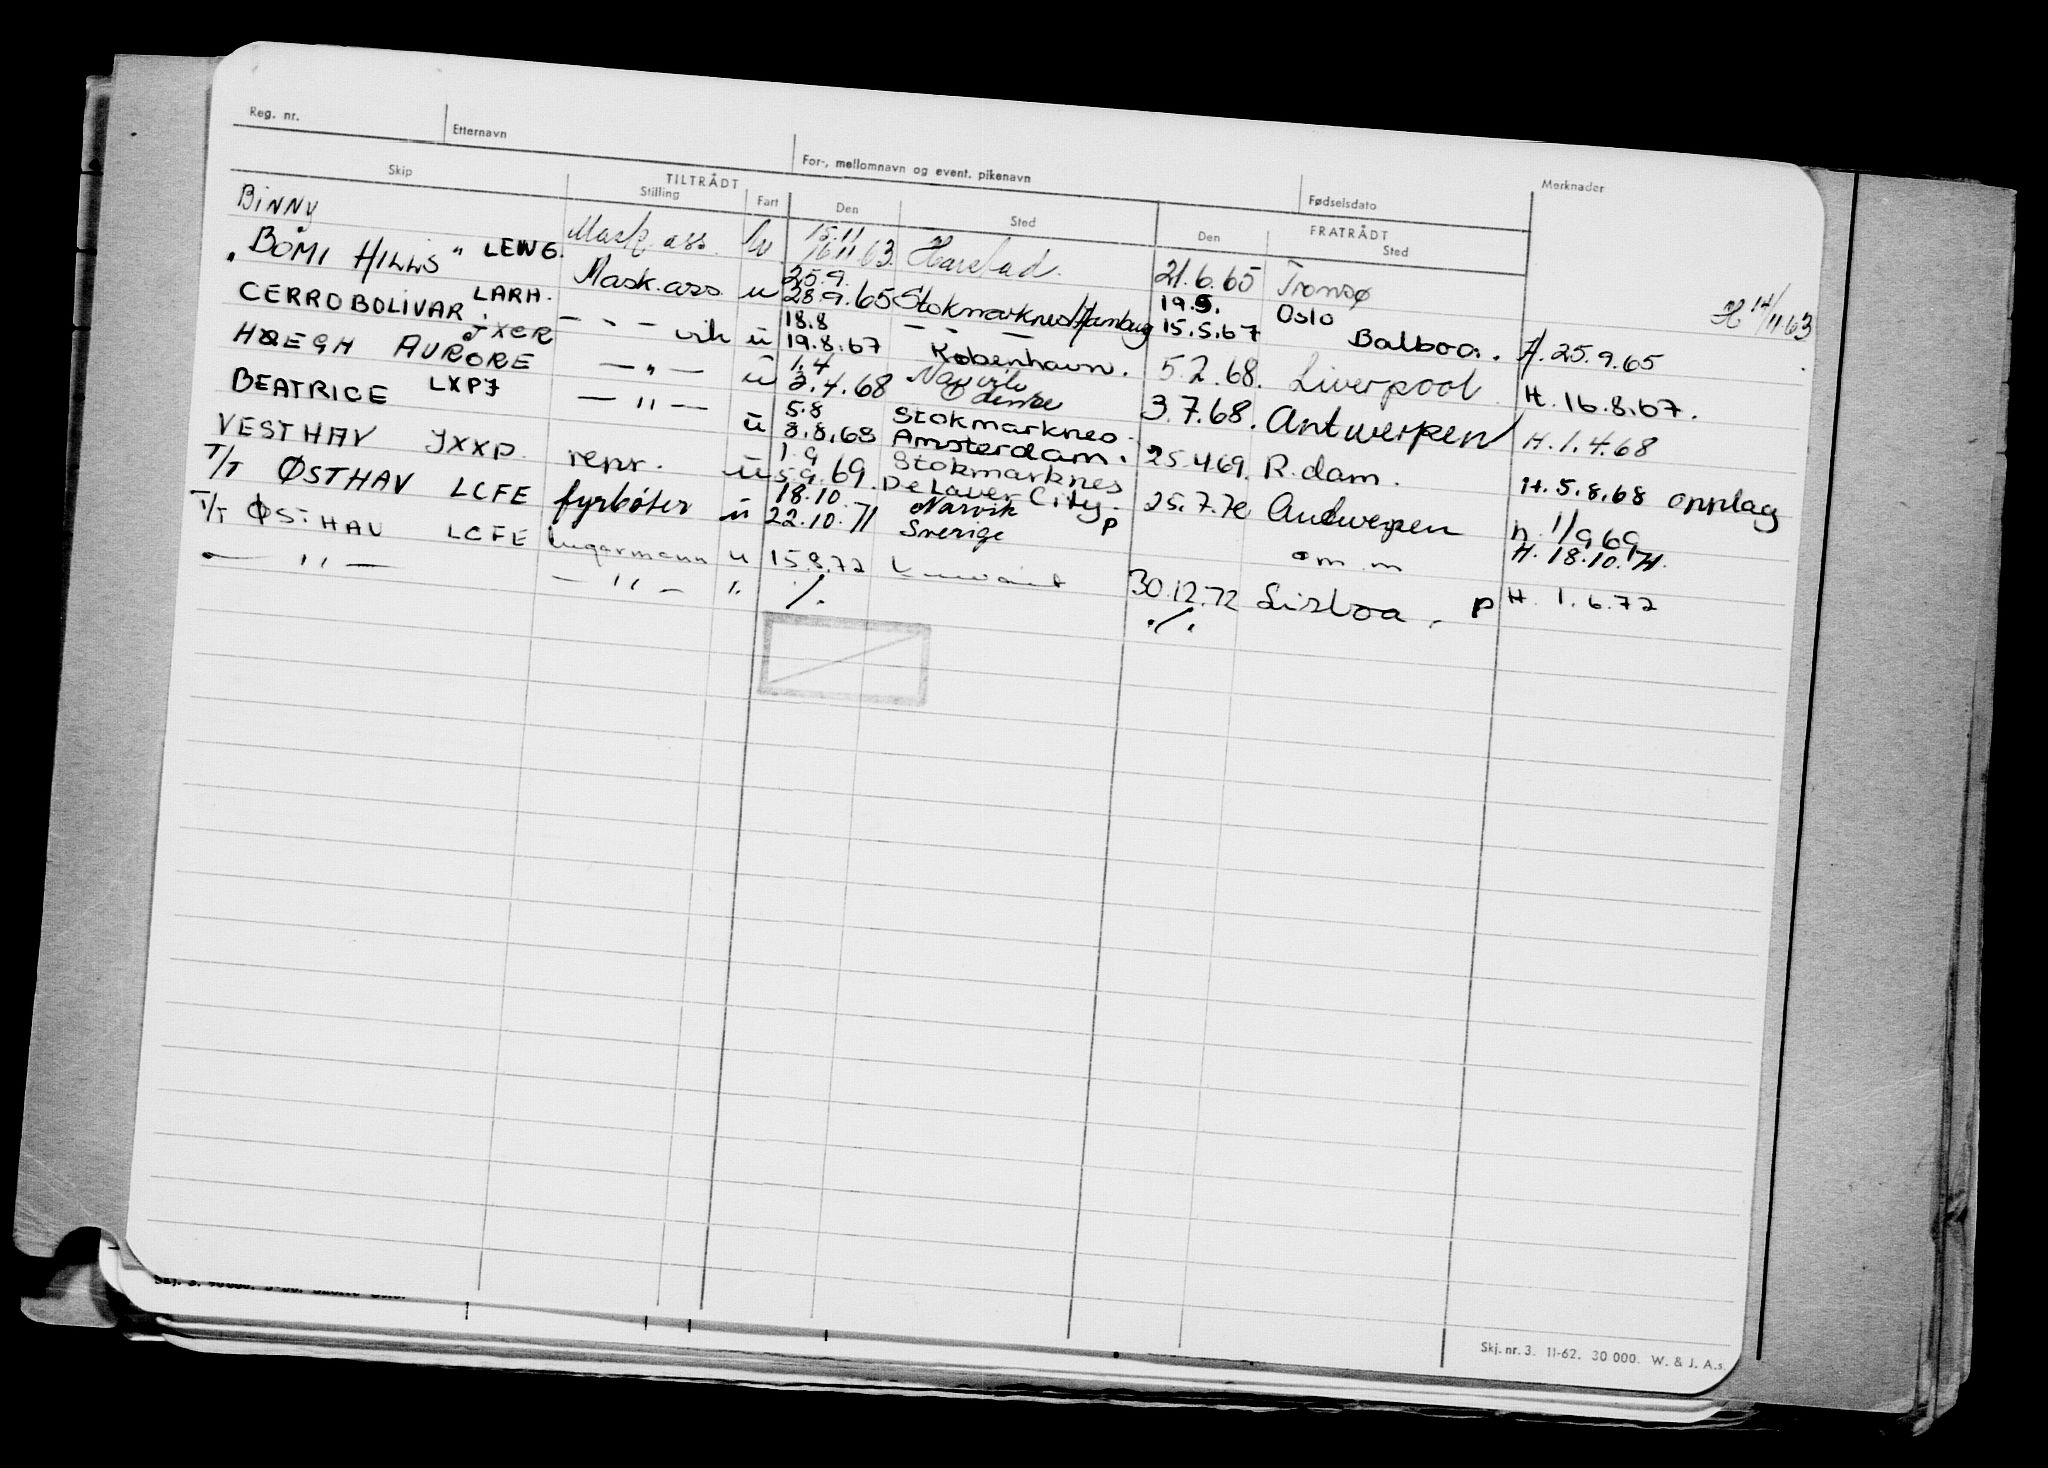 Reg. nr. Etternavn For-, mellomnavn og event. pikenavn Fødselsdato Merknader
Skip TILTRÅDT FRATRÅDT
Stilling Fart Den Sted Den Sted
H 14/11 63
Binny Mask. ass. 15.11 16.11 63. Harstad. 21.6.65 Tromsø
"BOMI HILLS" LEWG. Mask. ass. u 25.9. 28.9.65 Stokmarknes/Hamburg 19.5. 15.5.67 Oslo Balboa. H. 25.9.65
CERRO BOLIVAR LARH. - " - vik u 18.8 19.8.67 København. 5.2.68. Liverpool H. 16.8.67.
HØEGH AURORE JXCR — " — u 1.4 3.4.68 Narvik 3.7.68. Antwerpen H. 1.4.68
BEATRICE LXPJ — " — u 5.8 8.8.68 Stokmarknes Amsterdam. 25.4.69. R.dam. H. 5.8.68 opplag
VESTHAV JXXP. repr. u 1.9 5.9.69. Stokmarknes Delaver City. 25.7.70 Antwerpen h 1/9 69
T/T ØSTHAV LCFE fyrbøter u 18.10. 22.10.71 Narvik Sverige p om m H. 18.10.71.
T/T ØSTHAV LCFE lugarmann u 15.8.72 30.12.72 Lisboa. p H. 1.6.72
— " — — " — ". ./. ./.
Skj. nr. 3. 11-62. 30 000. W. & J. A.s.